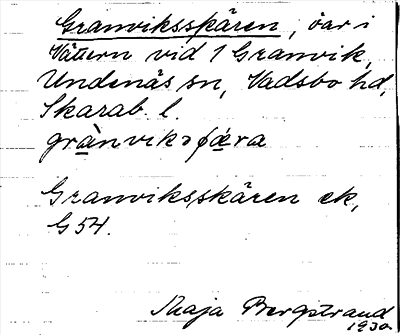 Granviksskären, öar i
Vättern vid 1 Granvik,
Undenäs sn, Vadsbo hd,
Skarab. l.
Granviksskären ek,
G 54.
Maja Bergstrand
1930